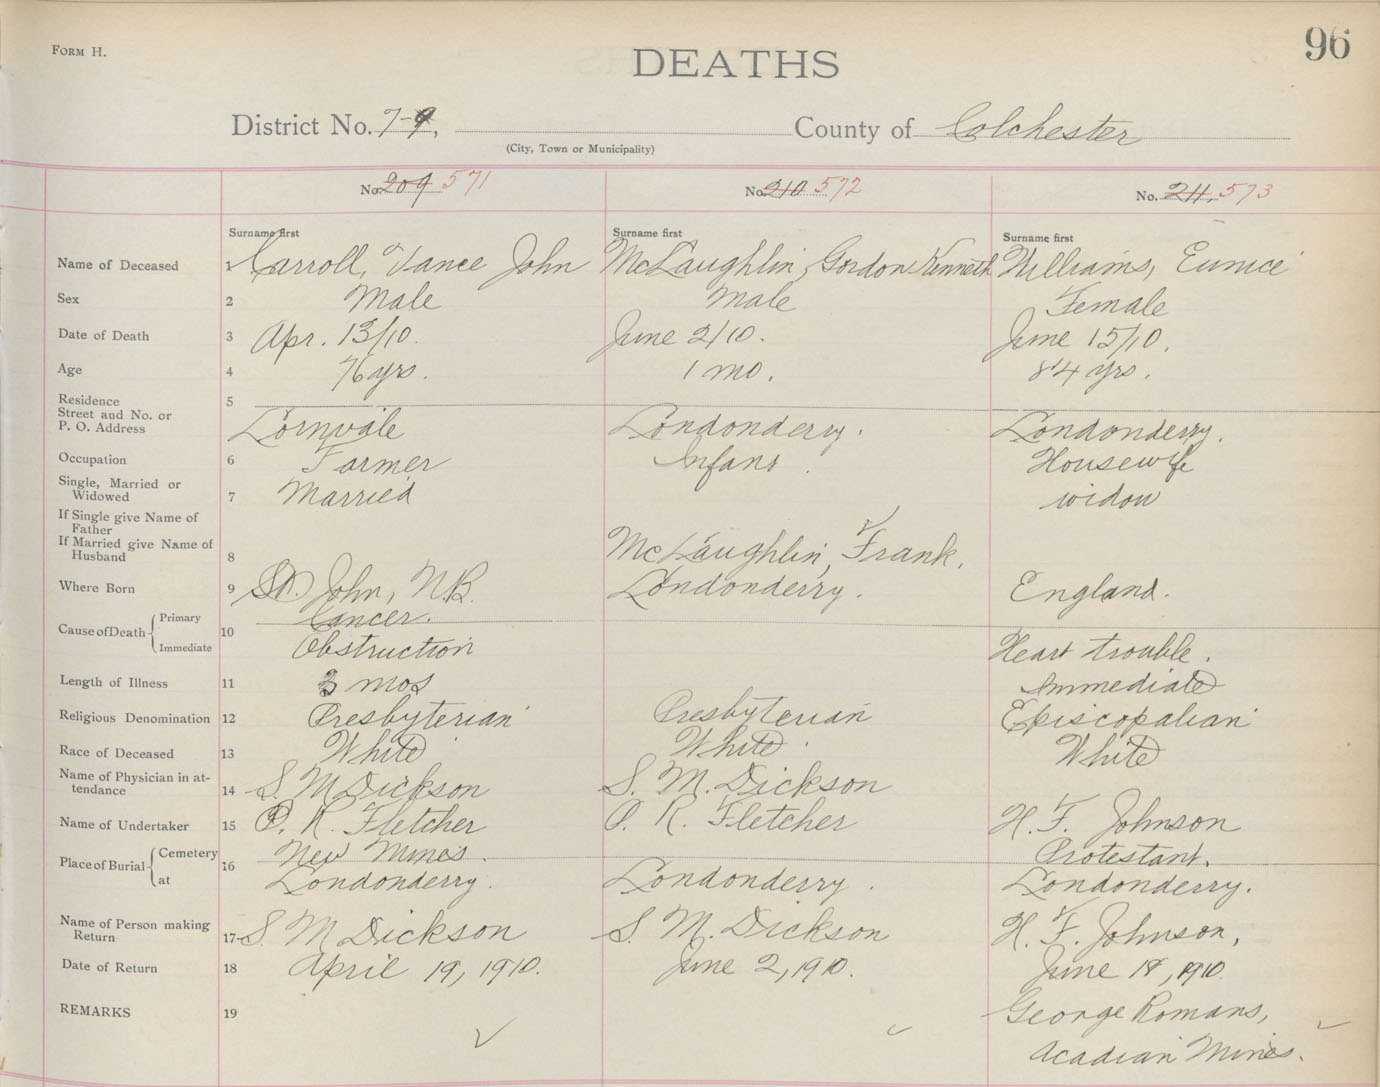 96
FORM H.
DEATHS
District No. 7-9, County of Colchester
(City, Town or Municipality)
No. 209 571 No. 210 572 No. 211, 573
Surname first Surname first Surname first
Name of Deceased 1 Carroll, Vance John McLaughlin, Gordon Kenneth Williams, Eunice
Sex 2 Male Male Female
Date of Death 3 Apr. 13/10. June 2/10. June 15/10.
Age 4 76 yrs. 1 mo. 84 yrs.
Residence 5
Street and No. or
P. O. Address Lornvale Londonderry. Londonderry.
Occupation 6 Farmer Infant. Housewife
Single, Married or
Widowed 7 Married widow
If Single give Name of
Father
If Married give Name of
Husband 8 McLaughlin, Frank.
Where Born 9 St. John, N.B. Londonderry. England.
Cause of Death Primary 10 Cancer.
Immediate Obstruction Heart trouble.
Length of Illness 11 3 mos Immediate
Religious Denomination 12 Presbyterian Presbyterian Episcopalian
Race of Deceased 13 White White. White
Name of Physician in at-
tendance 14 S. M. Dickson S. M. Dickson
Name of Undertaker 15 P. R. Fletcher P. R. Fletcher H. F. Johnson
Place of Burial Cemetery 16 New Mines. Protestant.
at Londonderry. Londonderry. Londonderry.
Name of Person making
Return 17 S. M. Dickson S. M. Dickson H. F. Johnson,
Date of Return 18 April 19, 1910. June 2, 1910. June 18, 1910.
REMARKS 19 George Romans,
Acadian Mines.